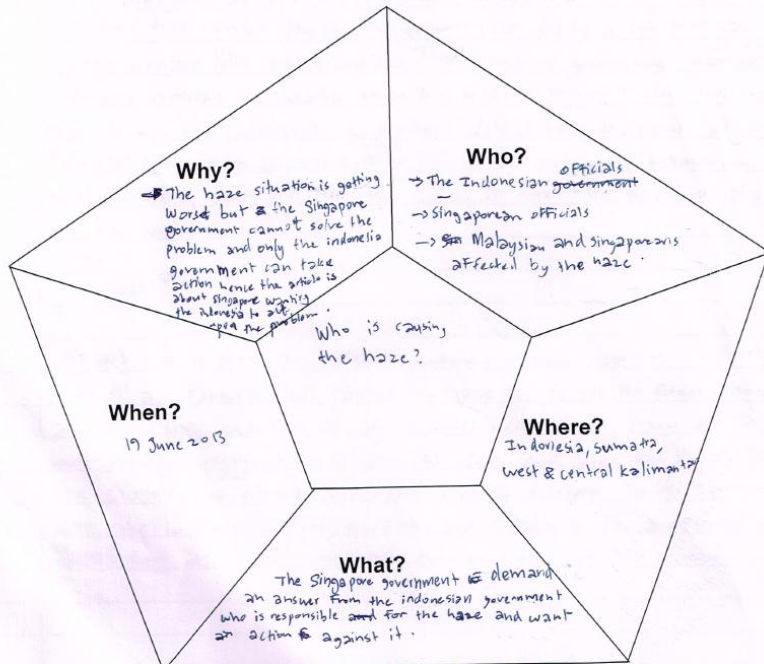 Why?
The haze situation is getting
worse but the Singapore
government cannot solve the
problem and only the indonesia
government can take
action hence the article is
about singapore wanting
the indonesia to act
upon the problem.
Who?
officials
→ The Indonesian government
→ Singaporean officials
→ Malaysian and singaporeans
affected by the haze.
Who is causing
the haze?
When?
19 June 2013
Where?
Indonesia, sumatra,
west & central kalimantan
What?
The Singapore government demand
an answer from the indonesian government
who is responsible for the haze and want
an action against it.